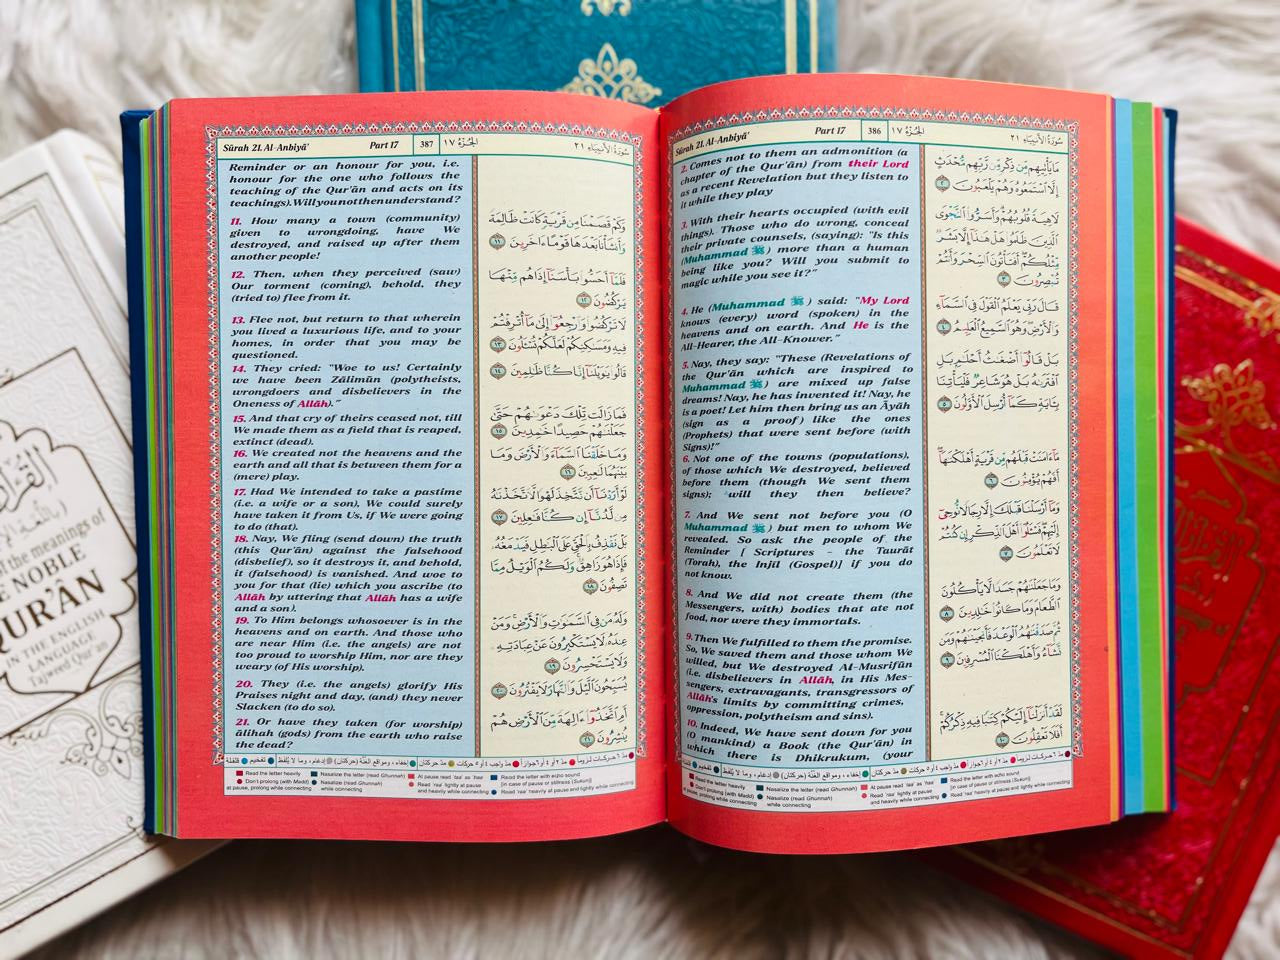 Sūrah 21. Al-Anbiyā'
Part 17
386
الجزء ١٧
سورة الأنبياء ٢١
2. Comes not to them an admonition (a
chapter of the Qur'ān) from their Lord
as a recent Revelation but they listen to
it while they play
3. With their hearts occupied (with evil
things). Those who do wrong, conceal
their private counsels, (saying): "Is this
(Muhammad ﷺ) more than a human
being like you? Will you submit to
magic while you see it?"
4. He (Muhammad ﷺ) said: "My Lord
knows (every) word (spoken) in the
heavens and on earth. And He is the
All-Hearer, the All-Knower."
5. Nay, they say: "These (Revelations of
the Qur'ān which are inspired to
Muhammad ﷺ) are mixed up false
dreams! Nay, he has invented it! Nay, he
is a poet! Let him then bring us an Āyāh
(sign as a proof) like the ones
(Prophets) that were sent before (with
Signs)!"
6. Not one of the towns (populations),
of those which We destroyed, believed
before them (though We sent them
signs); will they then believe?
7. And We sent not before you (O
Muhammad ﷺ) but men to whom We
revealed. So ask the people of the
Reminder [ Scriptures - the Taurāt
(Torah), the Injīl (Gospel)] if you do
not know.
8. And We did not create them (the
Messengers, with) bodies that ate not
food, nor were they immortals.
9. Then We fulfilled to them the promise.
So, We saved them and those whom We
willed, but We destroyed Al-Musrifūn
(i.e. disbelievers in Allāh, in His Mes-
sengers, extravagants, transgressors of
Allāh's limits by committing crimes,
oppression, polytheism and sins).
10. Indeed, We have sent down for you
(O mankind) a Book (the Qur'ān) in
which there is Dhikrukum, (your
مَا يَأْتِيهِم مِّن ذِكْرٍ مِّن رَّبِّهِم مُّحْدَثٍ
إِلَّا ٱسْتَمَعُوهُ وَهُمْ يَلْعَبُونَ ٢
لَاهِيَةً قُلُوبُهُمْ وَأَسَرُّوا۟ ٱلنَّجْوَى
ٱلَّذِينَ ظَلَمُوا۟ هَلْ هَٰذَآ إِلَّا بَشَرٌ
مِّثْلُكُمْ أَفَتَأْتُونَ ٱلسِّحْرَ وَأَنتُمْ
تُبْصِرُونَ ٣
قَالَ رَبِّي يَعْلَمُ ٱلْقَوْلَ فِي ٱلسَّمَآءِ
وَٱلْأَرْضِ وَهُوَ ٱلسَّمِيعُ ٱلْعَلِيمُ ٤
بَلْ قَالُوٓا۟ أَضْغَٰثُ أَحْلَٰمٍۭ بَلِ
ٱفْتَرَىٰهُ بَلْ هُوَ شَاعِرٌ فَلْيَأْتِنَا
بِـَٔايَةٍ كَمَآ أُرْسِلَ ٱلْأَوَّلُونَ ٥
مَآ ءَامَنَتْ قَبْلَهُم مِّن قَرْيَةٍ أَهْلَكْنَٰهَآ
أَفَهُمْ يُؤْمِنُونَ ٦
وَمَآ أَرْسَلْنَا قَبْلَكَ إِلَّا رِجَالًا نُّوحِيٓ
إِلَيْهِمْ فَسْـَٔلُوٓا۟ أَهْلَ ٱلذِّكْرِ إِن كُنتُمْ
لَا تَعْلَمُونَ ٧
وَمَا جَعَلْنَٰهُمْ جَسَدًا لَّا يَأْكُلُونَ
ٱلطَّعَامَ وَمَا كَانُوا۟ خَٰلِدِينَ ٨
ثُمَّ صَدَقْنَٰهُمُ ٱلْوَعْدَ فَأَنجَيْنَٰهُمْ وَمَن
نَّشَآءُ وَأَهْلَكْنَا ٱلْمُسْرِفِينَ ٩
لَقَدْ أَنزَلْنَآ إِلَيْكُمْ كِتَٰبًا فِيهِ ذِكْرُكُمْ
أَفَلَا تَعْقِلُونَ ١٠
Read the letter heavily
Nasalize the letter (read Ghunnah)
At pause read 'taa' as 'haa'
Read the letter with echo sound
Don't prolong (with Madd)
at pause, prolong while connecting
Nasalize (read Ghunnah)
while connecting
Read 'raa' lightly at pause
and heavily while connecting
[in case of pause or stillness (Sukun)]
Read 'raa' heavily at pause and lightly while connecting
Sūrah 21. Al-Anbiyā'
Part 17
387
الجزء ١٧
سورة الأنبياء ٢١
Reminder or an honour for you, i.e.
honour for the one who follows the
teaching of the Qur'ān and acts on its
teachings). Will you not then understand?
11. How many a town (community)
given to wrongdoing, have We
destroyed, and raised up after them
another people!
12. Then, when they perceived (saw)
Our torment (coming), behold, they
(tried to) flee from it.
13. Flee not, but return to that wherein
you lived a luxurious life, and to your
homes, in order that you may be
questioned.
14. They cried: "Woe to us! Certainly
we have been Zālimūn (polytheists,
wrongdoers and disbelievers in the
Oneness of Allāh)."
15. And that cry of theirs ceased not, till
We made them as a field that is reaped,
extinct (dead).
16. We created not the heavens and the
earth and all that is between them for a
(mere) play.
17. Had We intended to take a pastime
(i.e. a wife or a son), We could surely
have taken it from Us, if We were going
to do (that).
18. Nay, We fling (send down) the truth
(this Qur'ān) against the falsehood
(disbelief), so it destroys it, and behold,
it (falsehood) is vanished. And woe to
you for that (lie) which you ascribe (to
Allāh by uttering that Allāh has a wife
and a son).
19. To Him belongs whosoever is in the
heavens and on earth. And those who
are near Him (i.e. the angels) are not
too proud to worship Him, nor are they
weary (of His worship).
20. They (i.e. the angels) glorify His
Praises night and day, (and) they never
Slacken (to do so).
21. Or have they taken (for worship)
ālihah (gods) from the earth who raise
the dead?
وَكَمْ قَصَمْنَا مِن قَرْيَةٍ كَانَتْ ظَالِمَةً
وَأَنشَأْنَا بَعْدَهَا قَوْمًا ءَاخَرِينَ ١١
فَلَمَّآ أَحَسُّوا۟ بَأْسَنَآ إِذَا هُم مِّنْهَا
يَرْكُضُونَ ١٢
لَا تَرْكُضُوا۟ وَٱرْجِعُوٓا۟ إِلَىٰ مَآ أُتْرِفْتُمْ
فِيهِ وَمَسَٰكِنِكُمْ لَعَلَّكُمْ تُسْـَٔلُونَ ١٣
قَالُوا۟ يَٰوَيْلَنَآ إِنَّا كُنَّا ظَٰلِمِينَ ١٤
فَمَا زَالَت تِّلْكَ دَعْوَىٰهُمْ حَتَّىٰ
جَعَلْنَٰهُمْ حَصِيدًا خَٰمِدِينَ ١٥
وَمَا خَلَقْنَا ٱلسَّمَآءَ وَٱلْأَرْضَ وَمَا
بَيْنَهُمَا لَٰعِبِينَ ١٦
لَوْ أَرَدْنَآ أَن نَّتَّخِذَ لَهْوًا لَّٱتَّخَذْنَٰهُ
مِن لَّدُنَّآ إِن كُنَّا فَٰعِلِينَ ١٧
بَلْ نَقْذِفُ بِٱلْحَقِّ عَلَى ٱلْبَٰطِلِ فَيَدْمَغُهُۥ
فَإِذَا هُوَ زَاهِقٌ وَلَكُمُ ٱلْوَيْلُ مِمَّا
تَصِفُونَ ١٨
وَلَهُۥ مَن فِي ٱلسَّمَٰوَٰتِ وَٱلْأَرْضِ وَمَنْ
عِندَهُۥ لَا يَسْتَكْبِرُونَ عَنْ عِبَادَتِهِۦ
وَلَا يَسْتَحْسِرُونَ ١٩
يُسَبِّحُونَ ٱلَّيْلَ وَٱلنَّهَارَ لَا يَفْتُرُونَ ٢٠
أَمِ ٱتَّخَذُوٓا۟ ءَالِهَةً مِّنَ ٱلْأَرْضِ هُمْ
يُنشِرُونَ ٢١
Read the letter heavily
Nasalize the letter (read Ghunnah)
At pause read 'taa' as 'haa'
Read the letter with echo sound
Don't prolong (with Madd)
at pause, prolong while connecting
Nasalize (read Ghunnah)
while connecting
Read 'raa' lightly at pause
and heavily while connecting
[in case of pause or stillness (Sukun)]
Read 'raa' heavily at pause and lightly while connecting
of the meanings of
NOBLE
QUR'ĀN
IN THE ENGLISH
LANGUAGE
Tajweed Qur'an